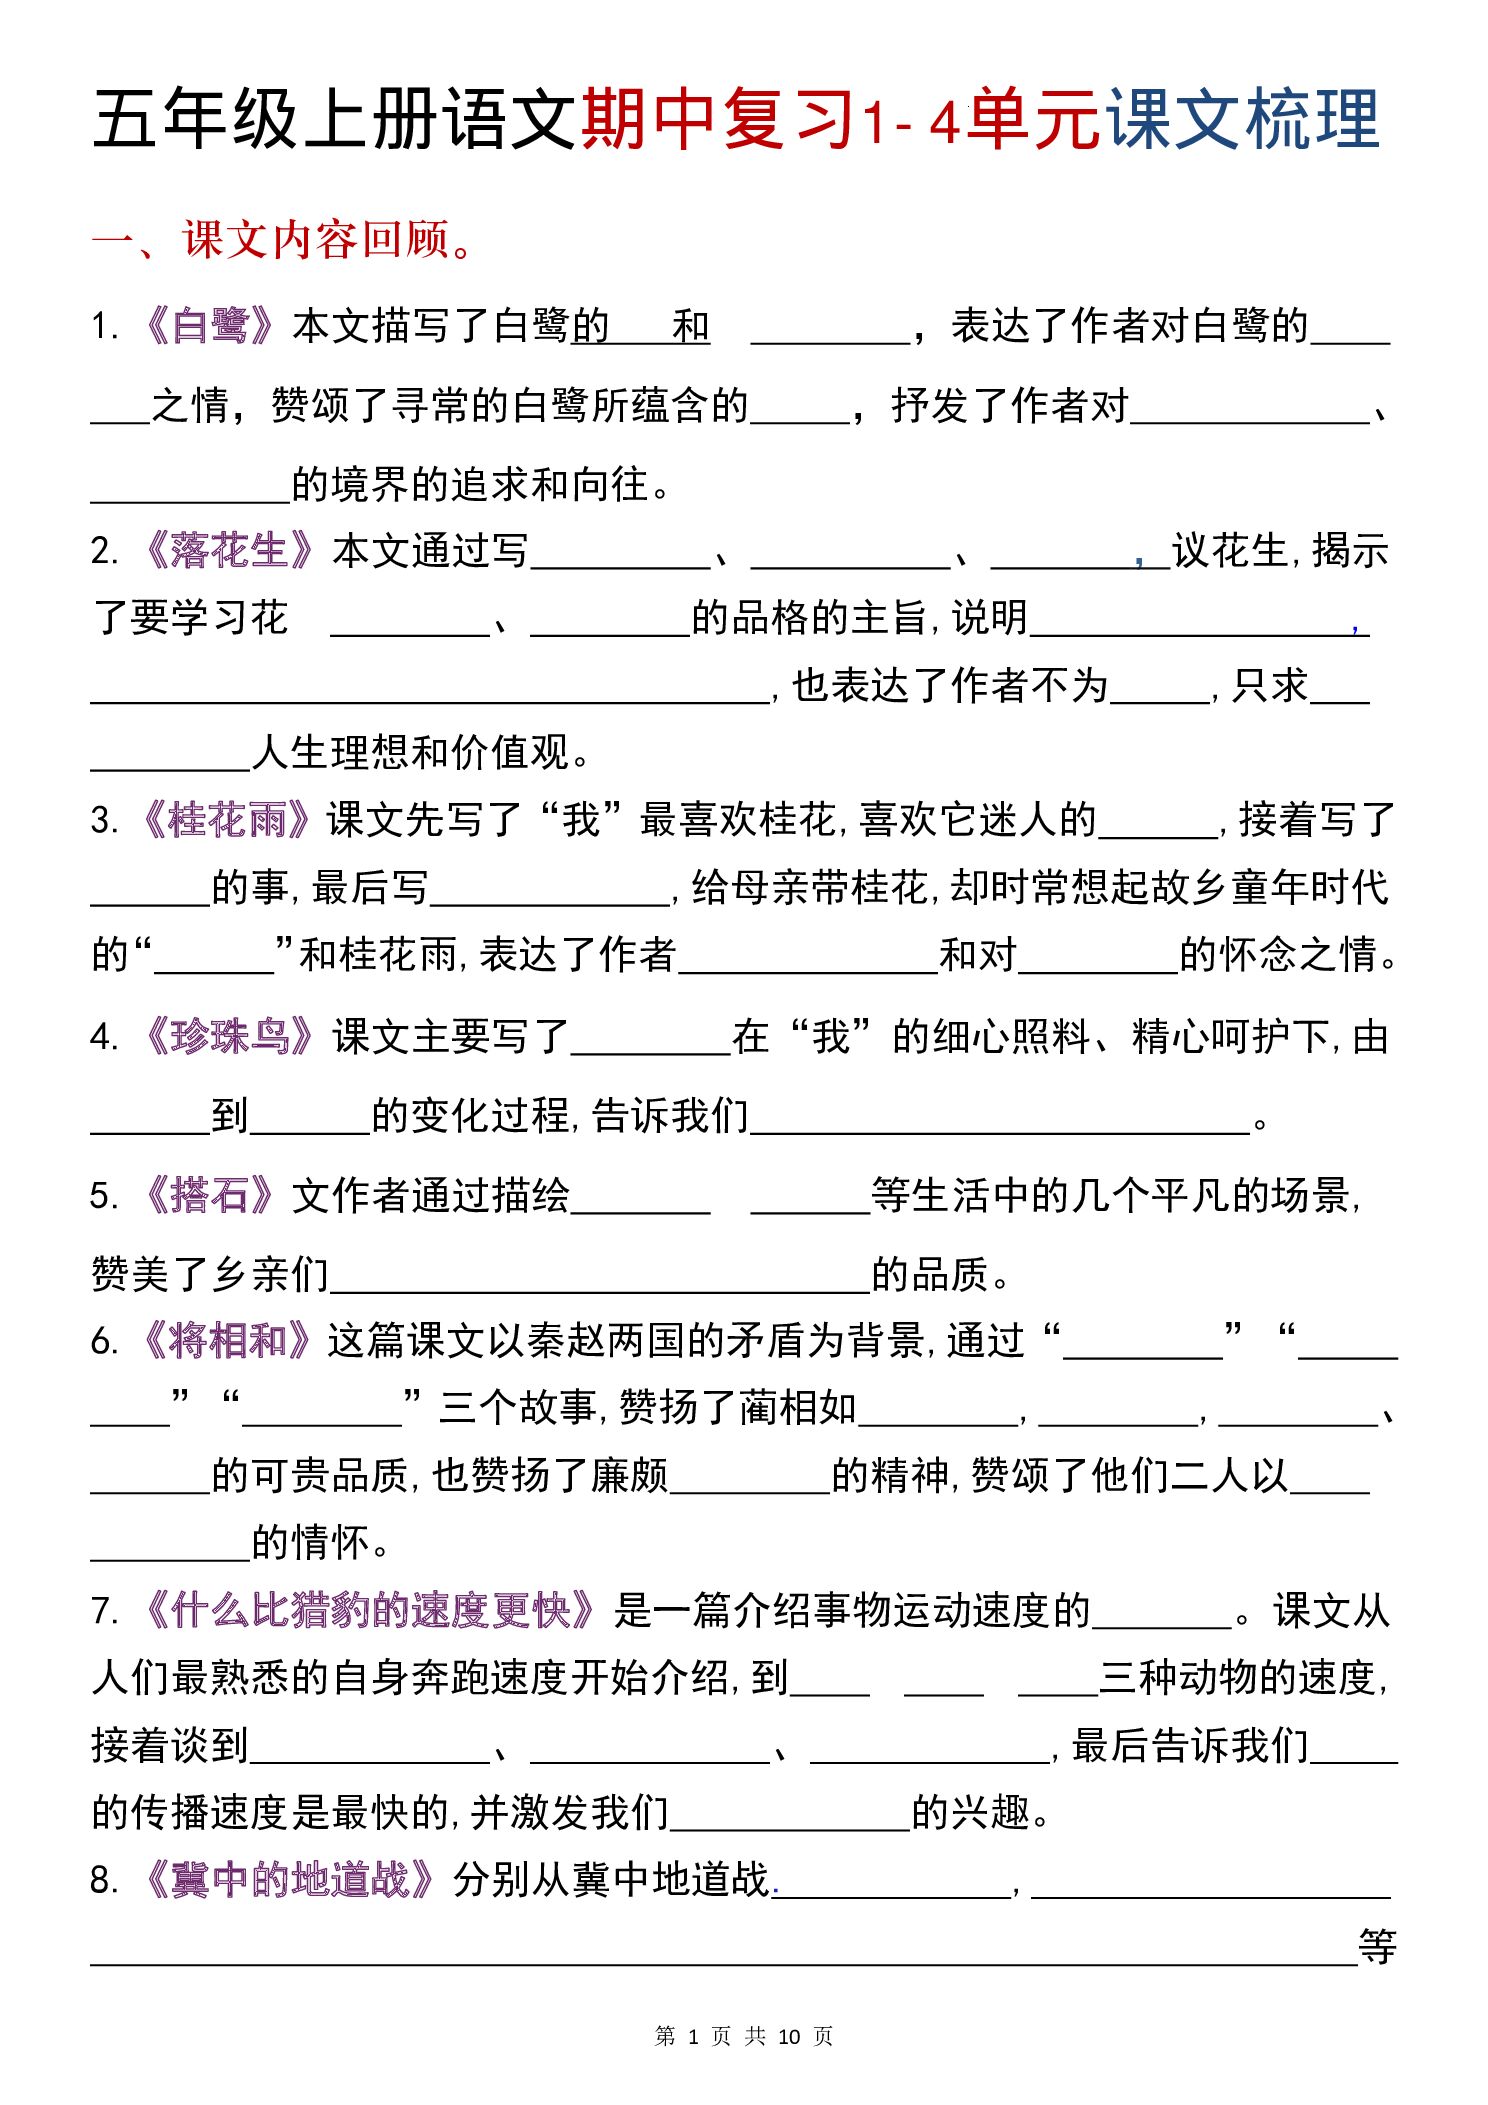 五年级上册语文期中复习1-4单元课文梳理
一、课文内容回顾。
1.《白鹭》本文描写了白鹭的____和 ________，表达了作者对白鹭的____
___之情，赞颂了寻常的白鹭所蕴含的_____，抒发了作者对____________、
__________的境界的追求和向往。
2.《落花生》本文通过写_________、__________、_________，议花生,揭示
了要学习花 ________、________的品格的主旨,说明_________________,
__________________________________,也表达了作者不为_____,只求___
________人生理想和价值观。
3.《桂花雨》课文先写了“我”最喜欢桂花,喜欢它迷人的______,接着写了
______的事,最后写____________,给母亲带桂花,却时常想起故乡童年时代
的“______”和桂花雨,表达了作者_____________和对________的怀念之情。
4.《珍珠鸟》课文主要写了________在“我”的细心照料、精心呵护下,由
______到______的变化过程,告诉我们_________________________。
5.《搭石》文作者通过描绘_______ ______等生活中的几个平凡的场景,
赞美了乡亲们___________________________的品质。
6.《将相和》这篇课文以秦赵两国的矛盾为背景,通过“________”“_____
____”“________”三个故事,赞扬了蔺相如________,________,________、
______的可贵品质,也赞扬了廉颇________的精神,赞颂了他们二人以____
________的情怀。
7.《什么比猎豹的速度更快》是一篇介绍事物运动速度的_______。课文从
人们最熟悉的自身奔跑速度开始介绍,到____ ____ ____三种动物的速度,
接着谈到____________、____________、____________,最后告诉我们____
的传播速度是最快的,并激发我们____________的兴趣。
8.《冀中的地道战》分别从冀中地道战.____________,__________________
_______________________________________________________________等
第 1 页 共 10 页